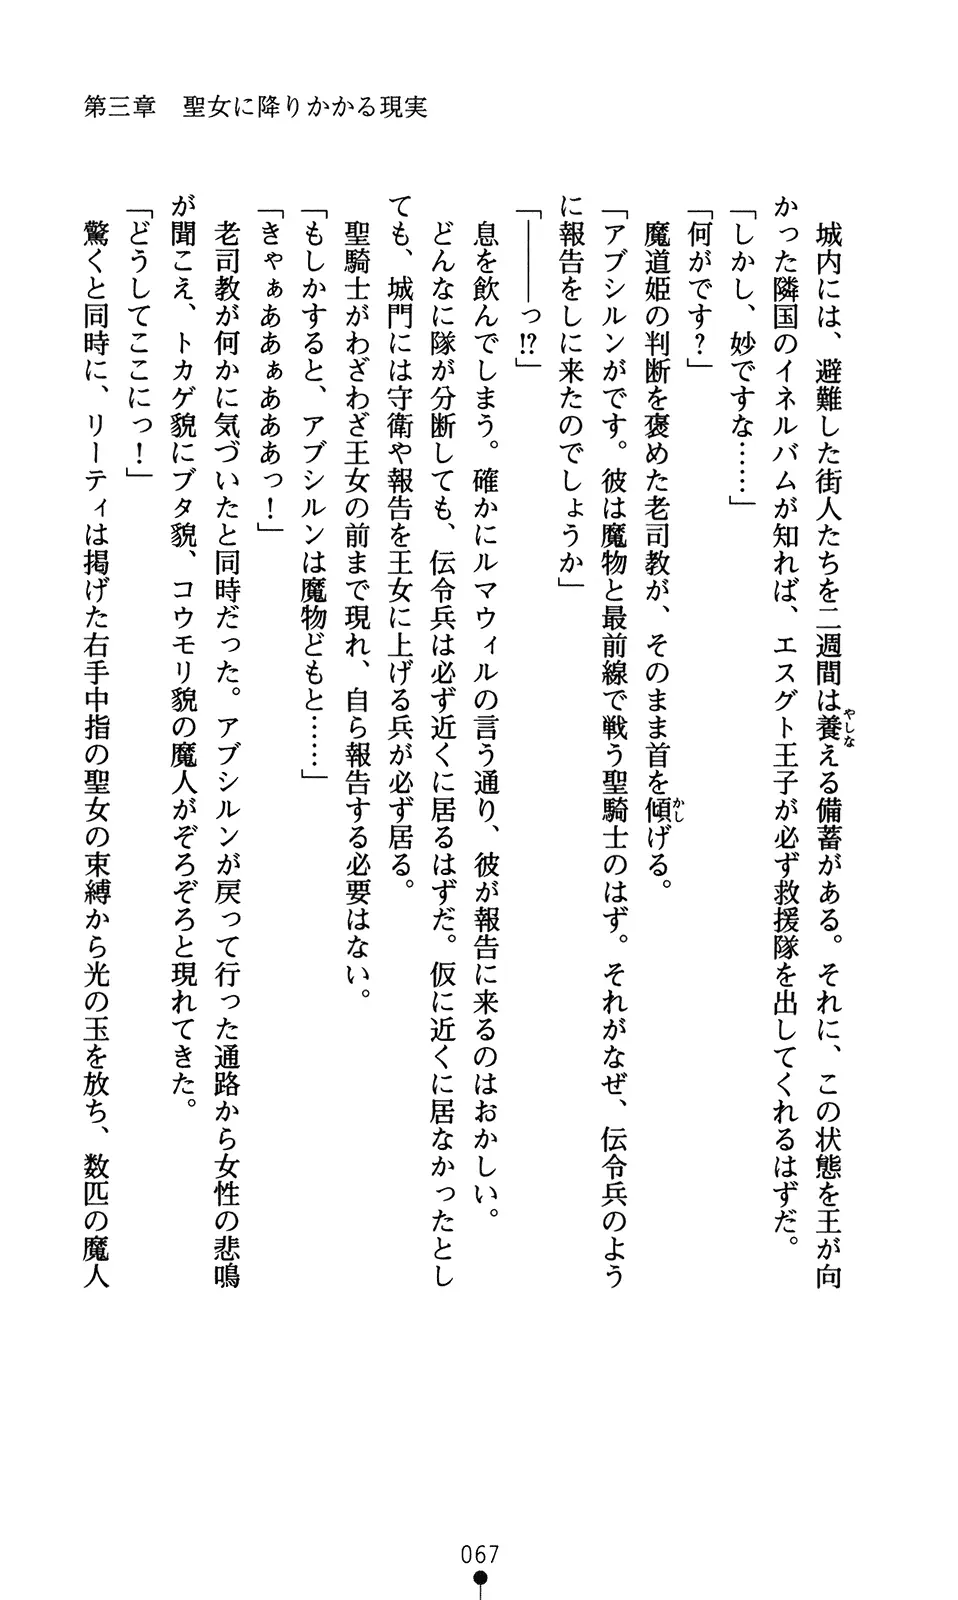 第三章　聖女に降りかかる現実
　城内には、避難した街人たちを二週間は養える備蓄がある。それに、この状態を王が向
かった隣国のイネルバムが知れば、エスグト王子が必ず救援隊を出してくれるはずだ。
「しかし、妙ですな……」
「何がです？」
　魔道姫の判断を褒めた老司教が、そのまま首を傾げる。
「アブシルンがです。彼は魔物と最前線で戦う聖騎士のはず。それがなぜ、伝令兵のよう
に報告をしに来たのでしょうか」
「―――っ!?」
　息を飲んでしまう。確かにルマウィルの言う通り、彼が報告に来るのはおかしい。
　どんなに隊が分断しても、伝令兵は必ず近くに居るはずだ。仮に近くに居なかったとし
ても、城門には守衛や報告を王女に上げる兵が必ず居る。
　聖騎士がわざわざ王女の前まで現れ、自ら報告する必要はない。
「もしかすると、アブシルンは魔物どもと……」
「きゃぁああぁあああっ！」
　老司教が何かに気づいたと同時だった。アブシルンが戻って行った通路から女性の悲鳴
が聞こえ、トカゲ貌にブタ貌、コウモリ貌の魔人がぞろぞろと現れてきた。
「どうしてここにっ！」
　驚くと同時に、リーティは掲げた右手中指の聖女の束縛から光の玉を放ち、数匹の魔人
やしな
かし
067